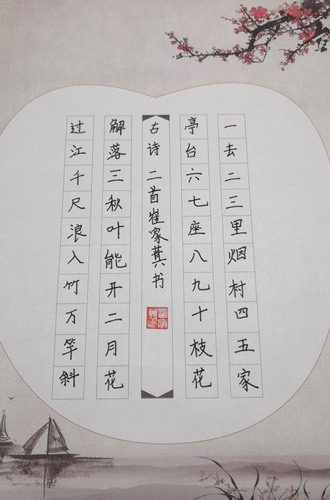 一去二三里烟村四五家
亭台六七座八九十枝花
古诗二首崔家萁书
解落三秋叶能开二月花
过江千尺浪入竹万竿斜